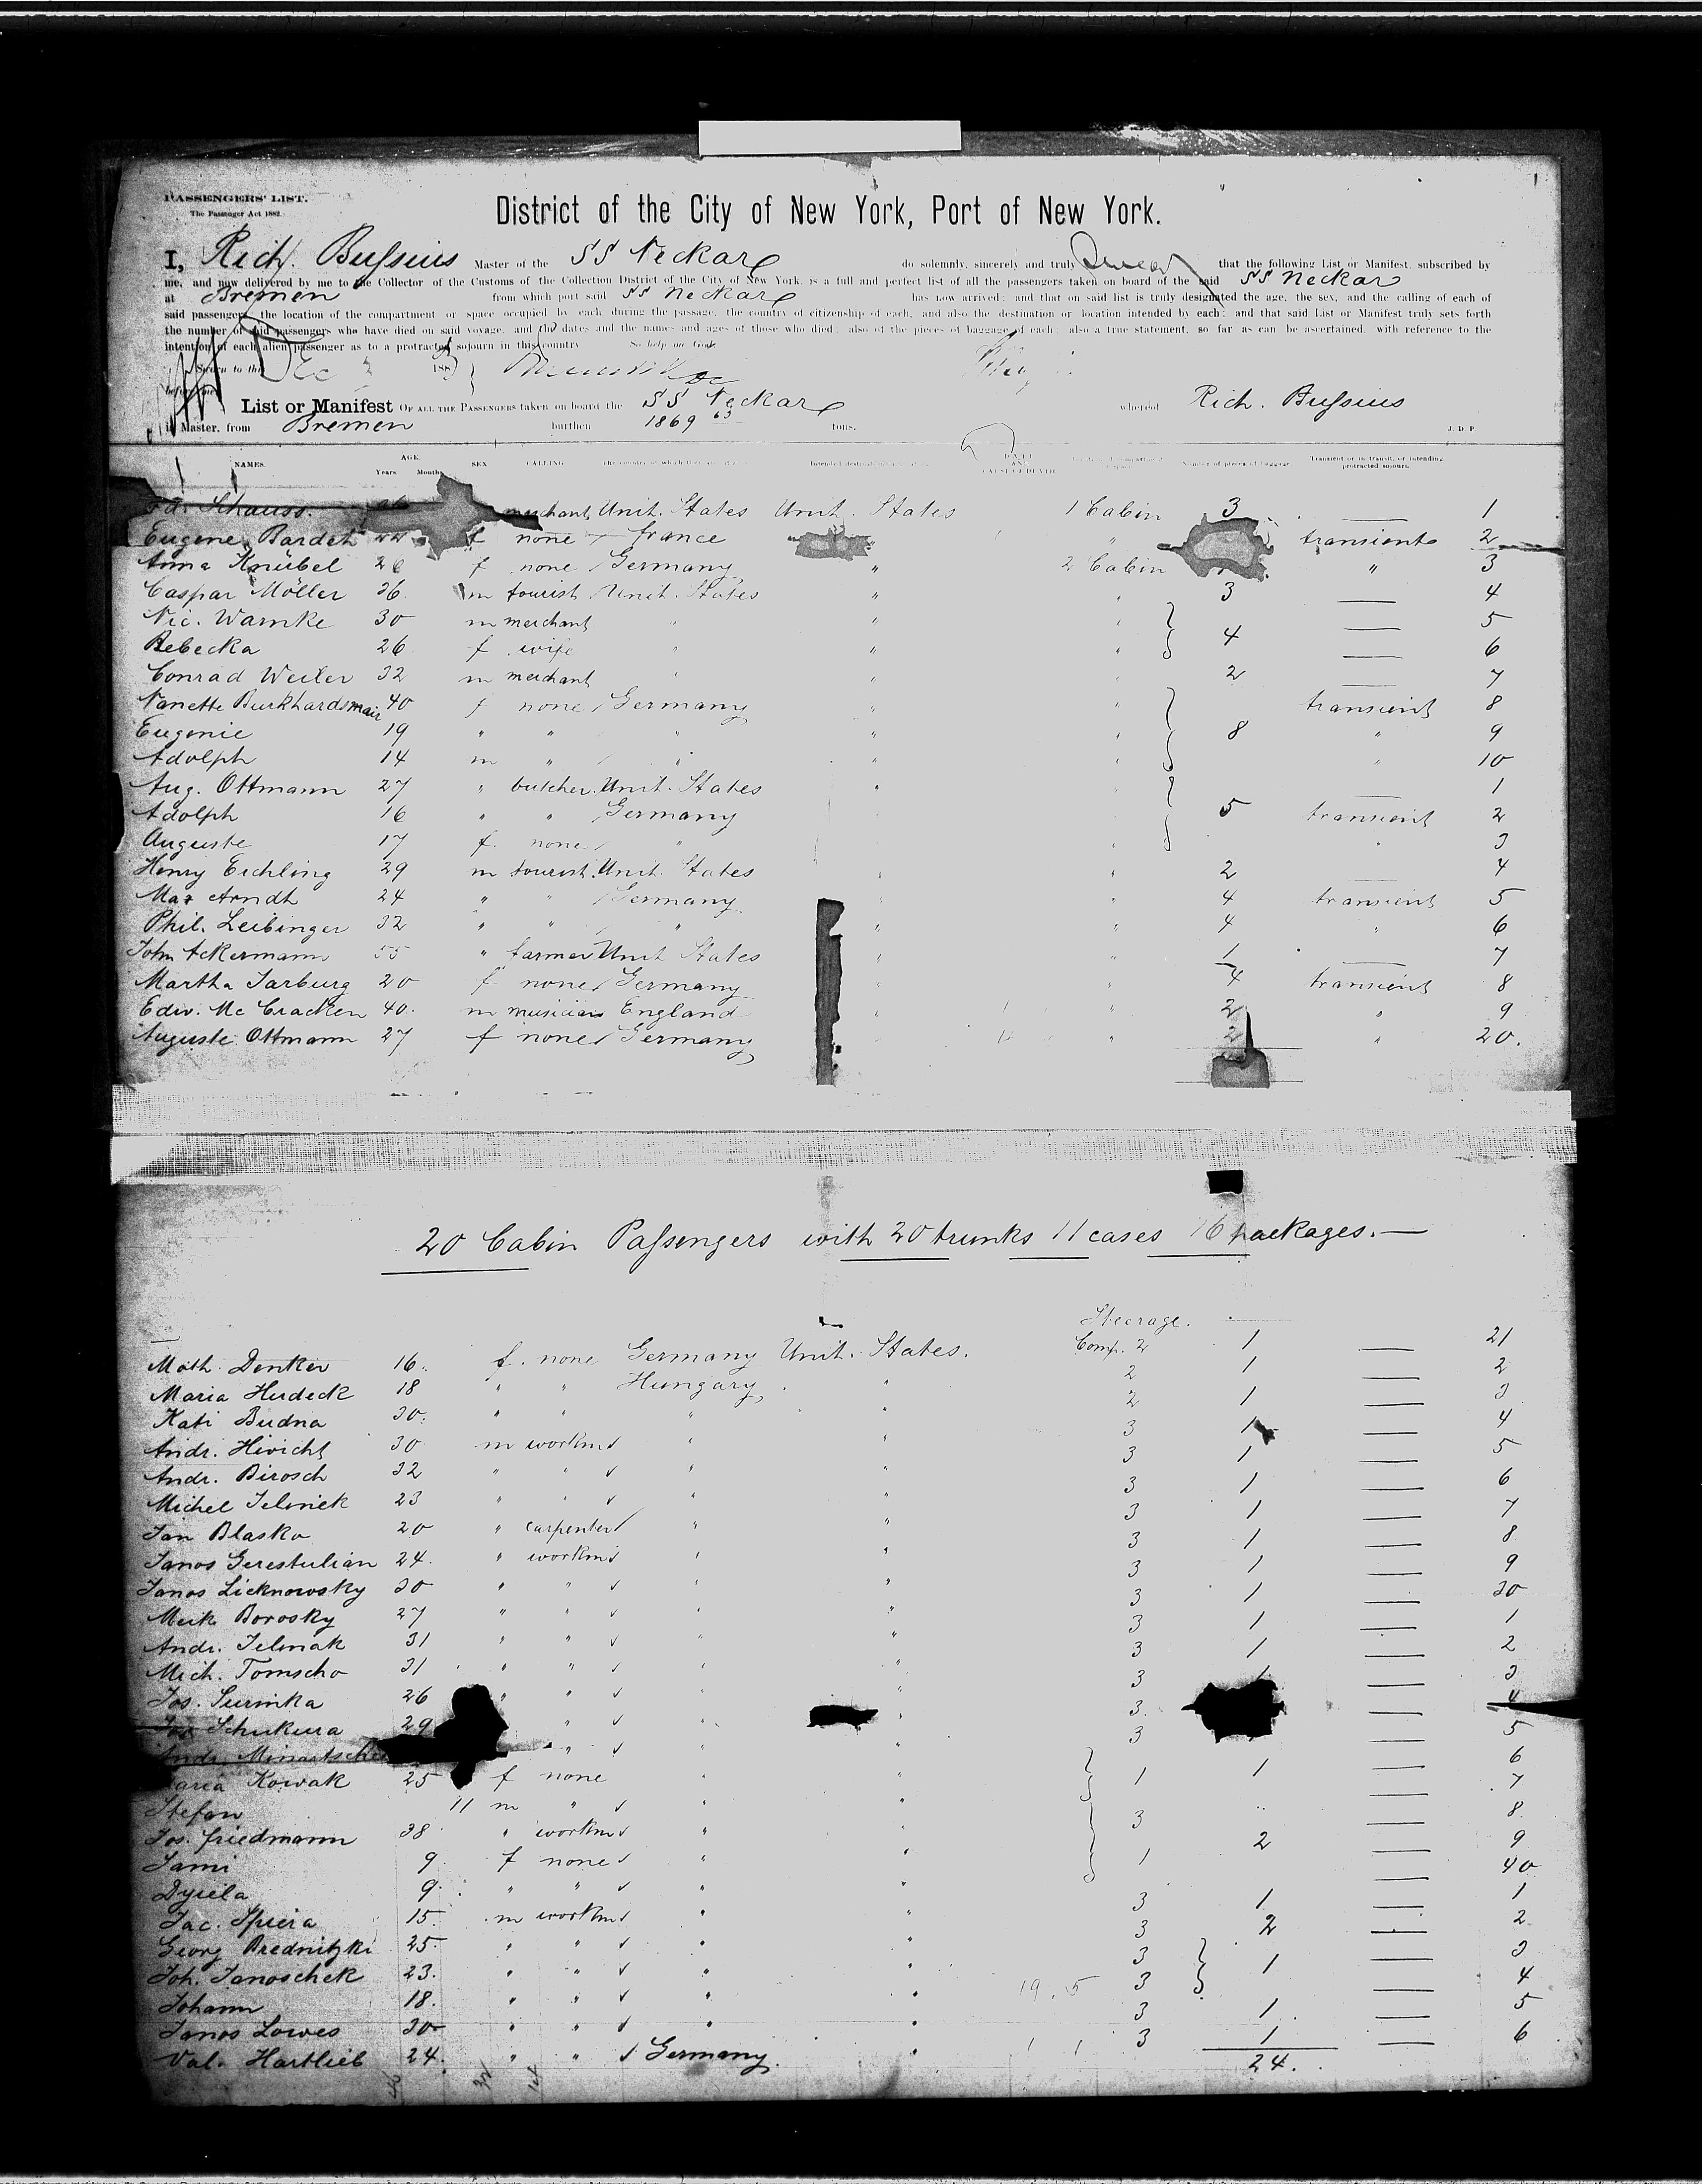 PASSENGERS' LIST.
The Passenger Act 1882.
District of the City of New York, Port of New York.
I, Rich. Bussius Master of the SS Neckar do solemnly, sincerely and truly swear that the following List or Manifest, subscribed by
me, and now delivered by me to the Collector of the Customs of the Collection District of the City of New York, is a full and perfect list of all the passengers taken on board of the said SS Neckar
at Bremen from which port said SS Neckar has now arrived; and that on said list is truly designated the age, the sex, and the calling of each of
said passengers, the location of the compartment or space occupied by each during the passage, the country of citizenship of each, and also the destination or location intended by each; and that said List or Manifest truly sets forth
the number of said passengers who have died on said voyage, and the dates and the names and ages of those who died; also of the pieces of baggage of each; also a true statement, so far as can be ascertained, with reference to the
intention of each alien passenger as to a protracted sojourn in this country. So help me God.
Sworn to this Dec 188
before me
List or Manifest OF ALL THE PASSENGERS taken on board the SS Neckar whereof Rich. Bussius
is Master, from Bremen burthen 1869 63 tons. J. D. P.
NAMES. AGE Years. Months. SEX CALLING The country of which they are citizens Intended destination DATE AND CAUSE OF DEATH Number of pieces of baggage Transient or in transit, or intending protracted sojourn.
Schauss. merchant Unit. States Unit. States 1 Cabin 3 — 1
Eugene Bardet 44 f none France " " transient 2
Anna Knübel f none Germany " 2 Cabin " 3
Caspar Möller 36 m tourist Unit. States " " 3 — 4
Nic. Warnke 30 m merchant " " " — 5
Rebecka 26 f wife " " " 4 — 6
Conrad Weiler 32 m merchant " " " 2 — 7
Nanette Burkhardsmair 40 f none Germany " " transient 8
Eugenie 19 " " " " " 8 " 9
Adolph 14 m " " " " " 10
Aug. Ottmann 27 " butcher Unit. States " " — 1
Adolph 16 " " Germany 5 transient 2
Auguste 17 f. none " " " 3
Henry Eichling 29 m tourist Unit. States " " 2 — 4
Max Arndt 24 " " Germany " 4 transient 5
Phil. Leibinger 32 " " " " " 4 " 6
John Ackermann 55 " farmer Unit States " " 1 — 7
Martha Jarburg 20 f none Germany " " 4 transient 8
Edw. Mc Cracken 40. m musician England " " 2 " 9
Auguste Ottmann 27 f none Germany " 2 " 20.
20 Cabin Passengers with 20 trunks 11 cases 16 packages. —
Steerage.
Math. Denker 16. f. none Germany Unit. States. Comp. 2 1 — 21
Maria Hudeck 18 " " Hungary " 2 1 — 2
Kati Budna 30. " " " " 2 1 — 3
Andr. Hivicht 30 m workm " " 3 1 — 4
Andr. Birosch 32 " " " " 3 1 — 5
Michel Jelinek 23 " " " " 3 1 — 6
Jan Blasko 20 " carpenter " " 3 1 — 7
Janos Gerestulian 24. " workm " " 3 1 — 8
Janos Licknowsky 30 " " " " 3 1 — 9
Meik Borosky 27 " " " " 3 1 — 30
Andr. Jelinak 31 " " " " 3 1 — 1
Mich. Tomscho 31 " " " " 3 1 — 2
Jos. Surinka 26 " " " " 3 1 — 3
Schukura 29 " " " 3. — 4
Andr. " " " 3 — 5
Maria Kowak 25 f none " " 1 1 — 6
Stefan 11 m " " " — 7
Jos. Friedmann 38 " workm " " 3 — 8
Jami 9 f none " " 1 2 — 9
Dyiela 9. " " " " — 40
Jac. Spiera 15. m workm " " 3 1 — 1
Georg Brednitzki 25. " " " " 3 2 — 2
Joh. Janoschek 23. " " " " 3 1 — 3
Johann 18. " " " " 3 — 4
Janos Lowes 30 " " " " 3 1 — 5
Val. Hartlieb 24. " " Germany. " 3 1 — 6
24.